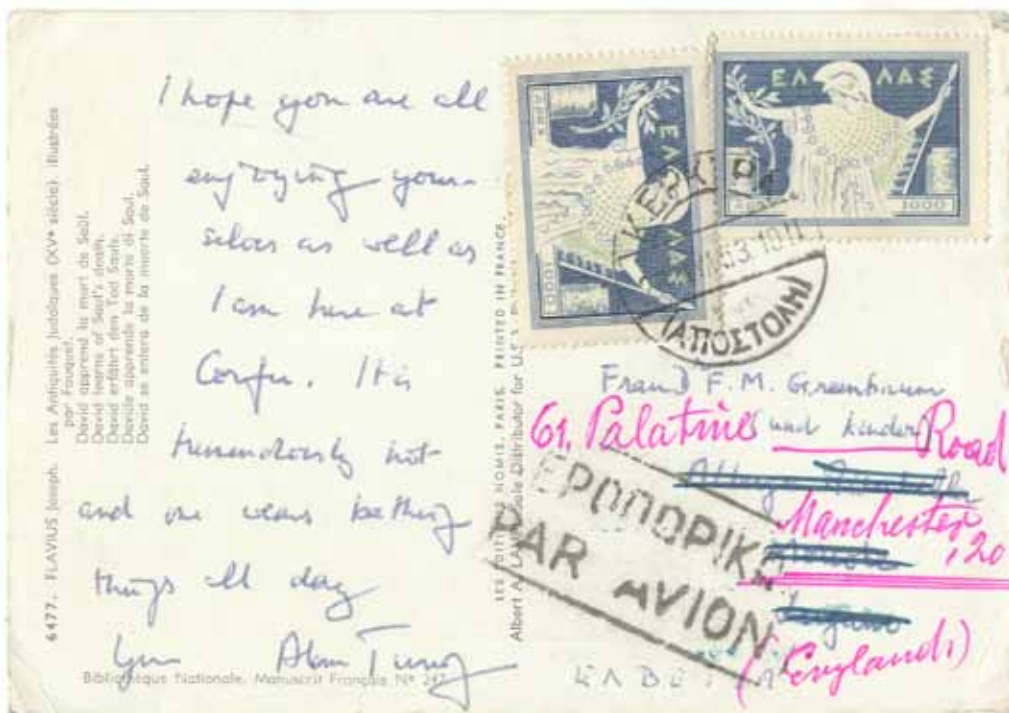 6477. FLAVIUS Joseph. Les Antiquités Judaïques (XVe siècle) illustrées
par Fouquet.
David apprend la mort de Saül.
David learns of Saul's death.
David erfährt den Tod Sauls.
Davide apprende la morte di Saul.
David se entera de la muerte de Saul.
I hope you are all
enjoying your-
selves as well as
I am here at
Corfu. It is
tremendously hot
and one wears bathing
things all day
Yours Alan Turing
Bibliothèque Nationale. Manuscrit Français Nº 247
LES ÉDITIONS NOMIS, PARIS. PRINTED IN FRANCE
Albert A. Sole Distributor for U.S.
ΕΛΛΑΣ
ΔΡΑΧ
1000
ΕΛΛΑΣ
ΔΡΑΧ
1000
ΚΕΡΚΥΡΑ
53.10
(ΑΠΟΣΤΟΛΗ)
Frau F. M. Greenbaum
und Kinder
61. Palatine Road
Manchester, 20
(England)
ΕΡΟΠΟΡΙΚ
PAR AVION